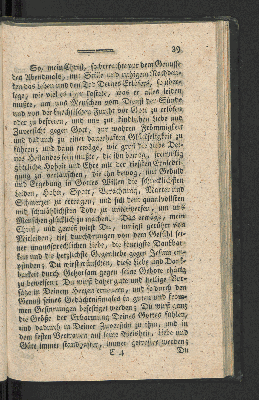 39
So, mein Christ, so betrachte vor dem Genusse
des Abendmals, mit Stille und ruhigem Nachden-
ken das Leben und den Tod Deines Erlösers, so über-
lege, wie viel es ihm kostete, was er alles leiden
mußte, um uns Menschen vom Dienst der Sünde
und von der knechtischen Furcht vor Gott zu erlösen
und zu befreien, und uns zur kindlichen Liebe und
Zuversicht gegen Gott, zur wahren Frömmigkeit
und dadurch zu einer dauerhaften Glückseligkeit zu
führen; und dann erwäge, wie groß die Liebe Dei-
nes Heilandes seyn mußte, die ihn bewog, freiwillig
göttliche Hoheit und Ehre mit der tiefsten Erniedri-
gung zu vertauschen, die ihn bewog, mit Geduld
und Ergebung in Gottes Willen die schrecklichsten
Leiden, Hohn, Spott, Verachtung, Marter und
Schmerzen zu ertragen, und sich dem qualvollsten
mit schmählichstem Tode zu unterwerfen, um uns
Menschen glücklich zu machen. Das erwäge, mein
Christ, und gewiß wirst Du, innigst gerührt von
Mitleiden, tief durchdrungen von dem Gefühl sei-
ner unaussprechlichen Liebe, die feurigste Dankbar-
keit und die herzlichste Gegenliebe gegen Jesum em-
pfinden; Du wirst wünschen, diese Liebe und Dank-
barkeit durch Gehorsam gegen seine Gebote thätig
zu beweisen; Du wirst daher gute und heilige Vor-
sätze in Deinem Herzen erneuern, und so durch den
Genuß seines Gedächtnißmales in guten und from-
men Gesinnungen befestiget werden; Du wirst ganz
die Größe der Erbarmung Deines Gottes fühlen,
und dadurch in Deiner Zuversicht zu ihm, und in
dem festen Vertrauen auf seine Weisheit, Liebe und
Güte immer standhafter, immer getroster werden;
C 4
Du